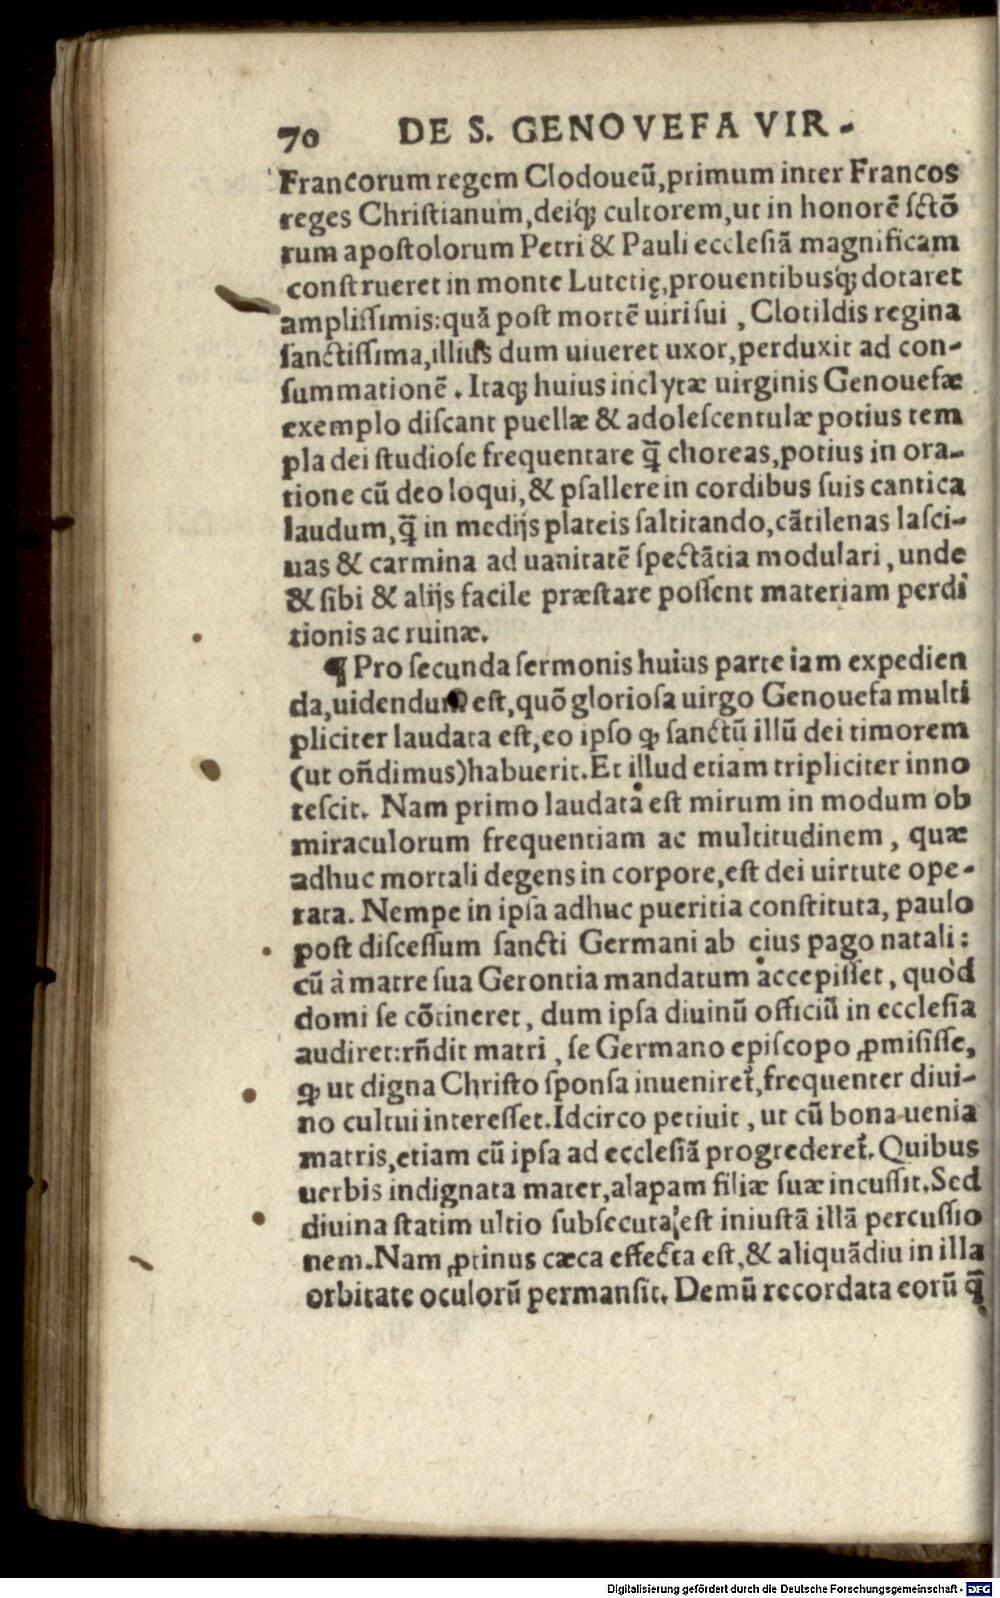 70 DE S. GENOVEFA VIR-
Francorum regem Clodoueũ,primum inter Francos
reges Chriſtianum,deiq́ꝫ cultorem,ut in honorẽ ſctõ
rum apoſtolorum Petri & Pauli eccleſiã magnificam
conſtrueret in monte Lutetię,prouentibusq́ꝫ dotaret
ampliſſimis:quã poſt mortẽ uiri ſui , Clotildis regina
ſanctiſſima,illius dum uiueret uxor,perduxit ad con-
ſummationẽ . Itaqꝫ huius inclytæ uirginis Genouefæ
exemplo diſcant puellæ & adoleſcentulæ potius tem
pla dei ſtudioſe frequentare q̃ choreas,potius in ora-
tione cũ deo loqui,& pſallere in cordibus ſuis cantica
laudum,q̃ in medijs plateis ſaltitando,cãtilenas laſci-
uas & carmina ad uanitatẽ ſpectãtia modulari , unde
& ſibi & alijs facile præſtare poſſent materiam perdi
tionis ac ruinæ.
¶ Pro ſecunda ſermonis huius parte iam expedien
da,uidendum eſt,quõ glorioſa uirgo Genouefa multi
pliciter laudata eſt,eo ipſo ꝙ ſanctũ illũ dei timorem
(ut oñdimus)habuerit.Et illud etiam tripliciter inno
teſcit. Nam primo laudata eſt mirum in modum ob
miraculorum frequentiam ac multitudinem , quæ
adhuc mortali degens in corpore,eſt dei uirtute ope-
rata. Nempe in ipſa adhuc pueritia conſtituta, paulo
poſt diſceſſum ſancti Germani ab eius pago natali:
cũ à matre ſua Gerontia mandatum accepiſſet , quòd
domi ſe cõtineret , dum ipſa diuinũ officiũ in eccleſia
audiret:rñdit matri , ſe Germano epiſcopo ꝓmiſiſſe,
ꝙ ut digna Chriſto ſponſa inueniret̃,frequenter diui-
no cultui intereſſet.Idcirco petiuit , ut cũ bona uenia
matris,etiam cũ ipſa ad eccleſiã progrederet̃. Quibus
uerbis indignata mater,alapam filiæ ſuæ incuſſit.Sed
diuina ſtatim ultio ſubſecuta eſt iniuſtã illã percuſſio
nem.Nam ꝓtinus cæca effecta eſt,& aliquãdiu in illa
orbitate oculorũ permanſit. Demũ recordata eorũ q̃
Digitalisierung gefördert durch die Deutsche Forschungsgemeinschaft - DFG